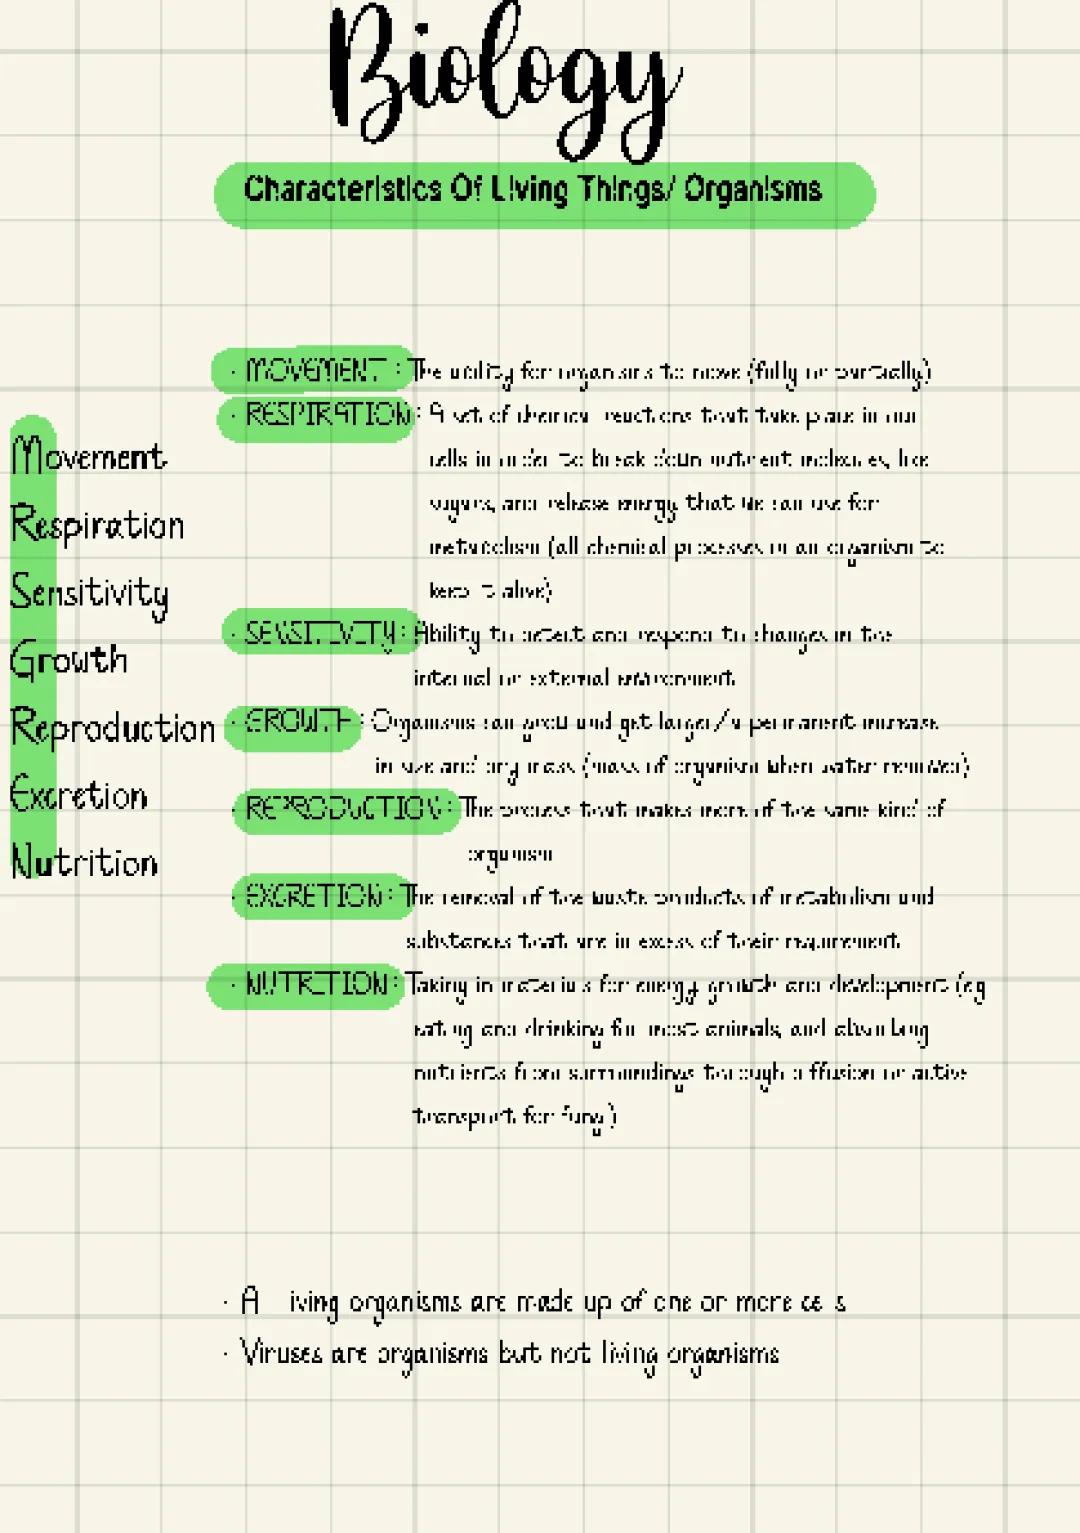 Biology
Characteristics Of Living Things/ Organisms
Movement
Respiration
Sensitivity
Growth
Reproduction
Excretion
Nutrition
· MOVEMENT: The ability for organisms to move (fully or partially)
· RESPIRATION: A set of chemical reactions that take place in our
cells in order to break down nutrient molecules, like
sugars, and release energy that we can use for
metabolism (all chemical processes in an organism to
keep it alive)
· SENSITIVITY: Ability to detect and respond to changes in the
internal or external environment
· GROWTH: Organisms can grow and get larger/a permanent increase
in size and dry mass (mass of organism when water removed)
· REPRODUCTION: The process that makes more of the same kind of
organism
· EXCRETION: The removal of the waste products of metabolism and
substances that are in excess of their requirement
· NUTRITION: Taking in materials for energy, growth and development (eg
eating and drinking for most animals, and absorbing
nutrients from surroundings through diffusion or active
transport for fungi)
· All living organisms are made up of one or more cells
· Viruses are organisms but not living organisms